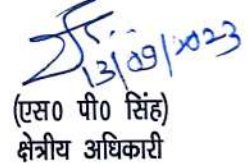 13/09/2023
(एस0 पी0 सिंह)
क्षेत्रीय अधिकारी